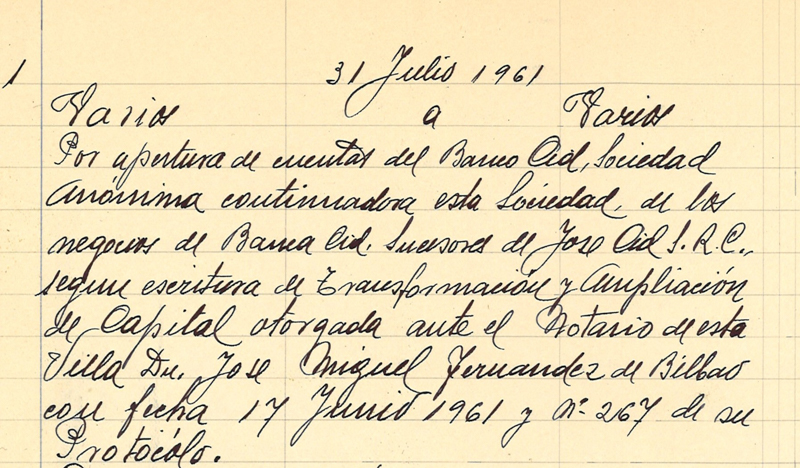 1 31 Julio 1961
Varios a Varios
Por apertura de cuentas del Banco Cid, Sociedad
Anónima continuadora esta Sociedad, de los
negocios de Banca Cid. Sucesores de Jose Cid S.R.C.,
segun escritura de Transformación y Ampliación
de Capital otorgada ante el Notario de esta
Villa Dn. Jose Miguel Fernandez de Bilbao
con fecha 17 Junio 1961 y Nº 267 de su
Protocólo.